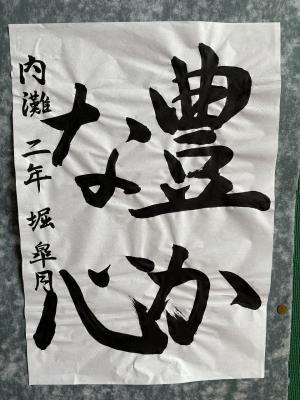 豊か
な心
内灘 二年 堀皐月